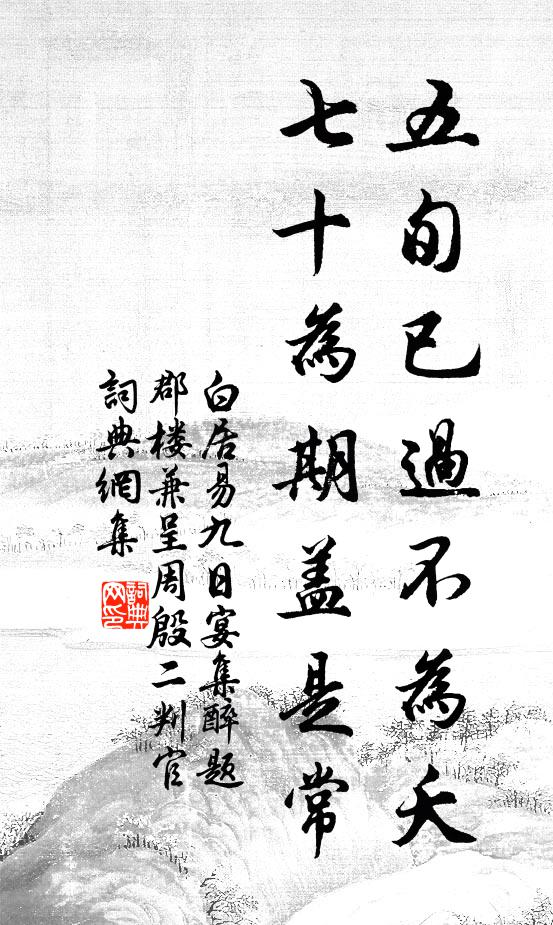 五旬已過不為夭
七十為期蓋是常
白居易九日宴集醉题
郡楼兼呈周殷二判官
詞典網集
詞典
网印